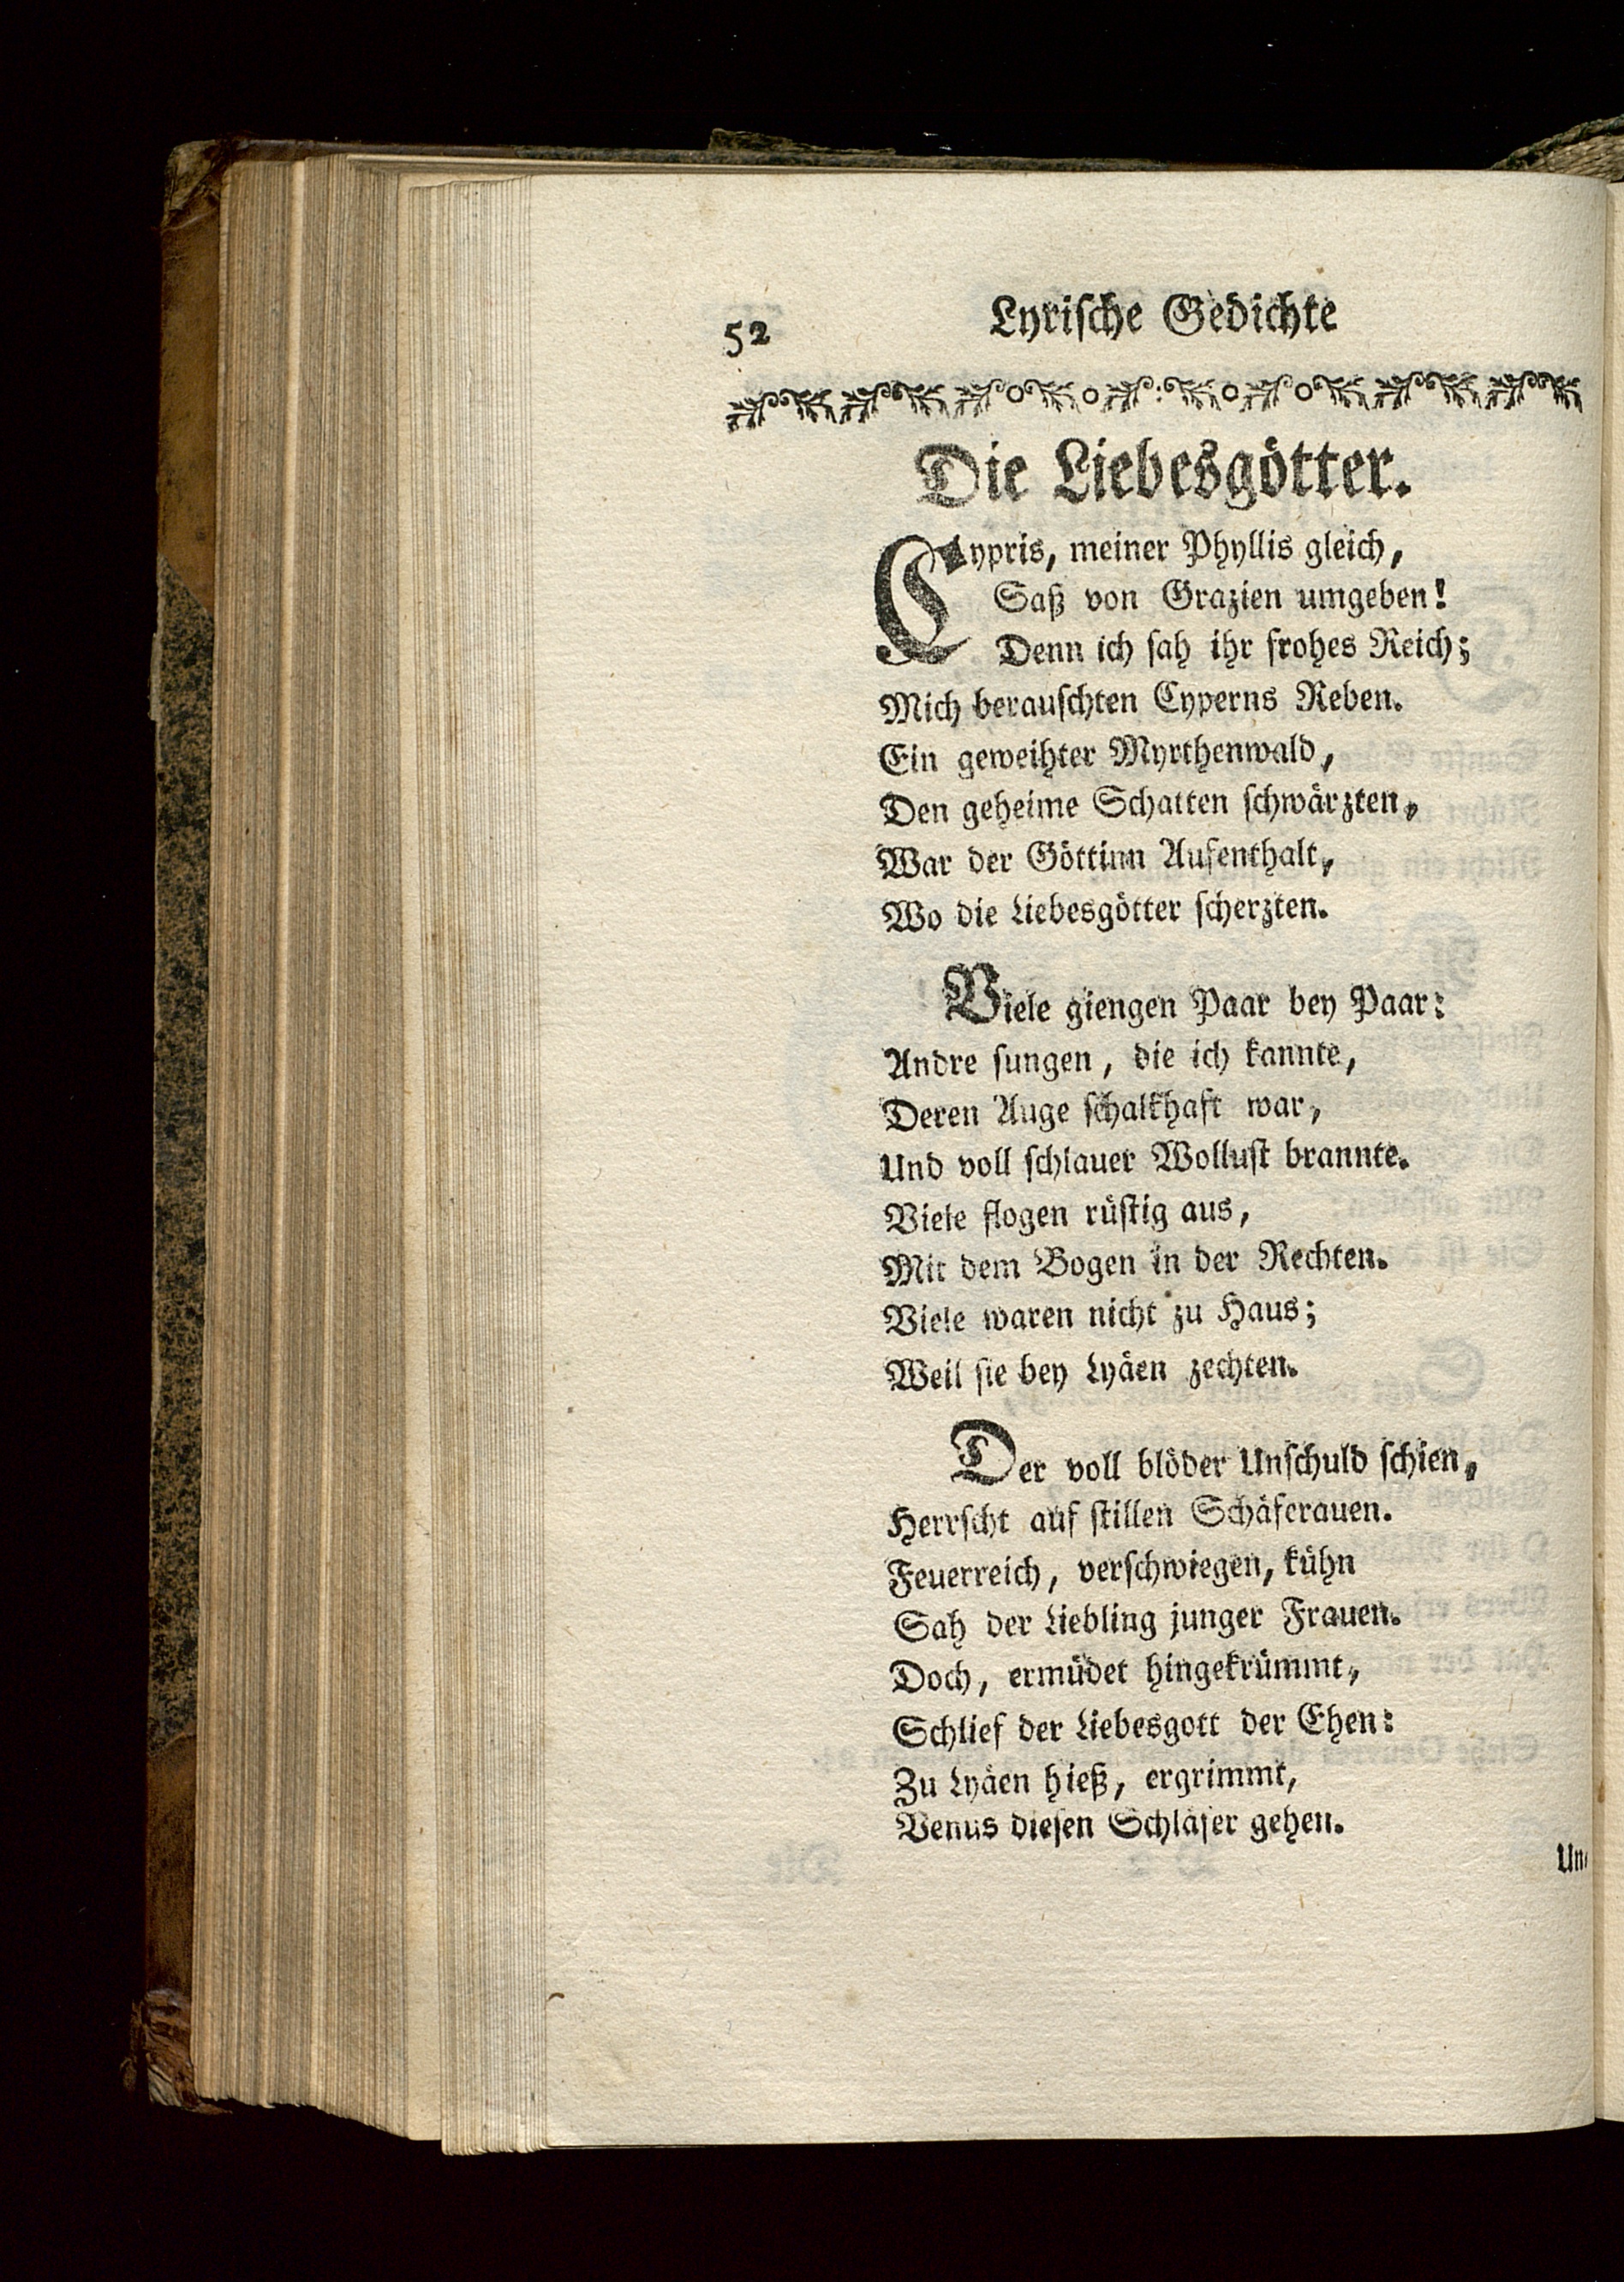 52 Lyrische Gedichte
Die Liebesgötter.
Cypris, meiner Phyllis gleich,
Saß von Grazien umgeben!
Denn ich sah ihr frohes Reich;
Mich berauschten Cyperns Reben.
Ein geweihter Myrthenwald,
Den geheime Schatten schwärzten,
War der Göttinn Aufenthalt,
Wo die Liebesgötter scherzten.
Viele giengen Paar bey Paar:
Andre sungen, die ich kannte,
Deren Auge schalkhaft war,
Und voll schlauer Wollust brannte.
Viele flogen rüstig aus,
Mit dem Bogen in der Rechten.
Viele waren nicht zu Haus;
Weil sie bey Lyäen zechten.
Der voll blöder Unschuld schien,
Herrscht auf stillen Schäferauen.
Feuerreich, verschwiegen, kühn
Sah der Liebling junger Frauen.
Doch, ermüdet hingekrümmt,
Schlief der Liebesgott der Ehen:
Zu Lyäen hieß, ergrimmt,
Venus diesen Schläfer gehen.